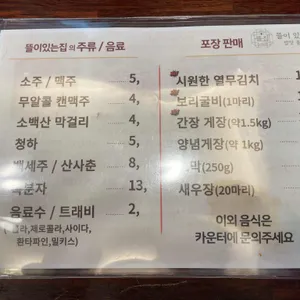 뜰이있는집의 주류 / 음료
소주 / 맥주 5,
무알콜 캔맥주 4,
소백산 막걸리 4,
청하 5,
백세주 / 산사춘 8,
분자 13,
음료수 / 트래비 2,
제로콜라,사이다,
환타파인,밀키스)
포장 판매
시원한 열무김치
보리굴비(1마리)
간장 게장(약1.5kg)
양념게장(약 1kg)
막(250g)
새우장(20마리)
이외 음식은
카운터에 문의주세요
뜰이 있